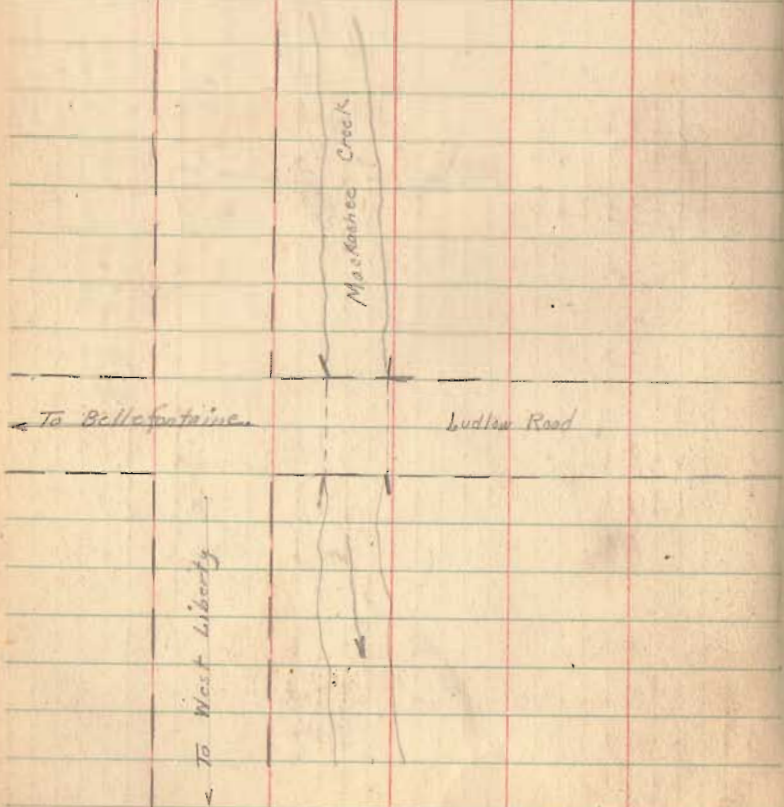 Mackachee Creek
To Bellefontaine
Ludlow Road
To West Liberty